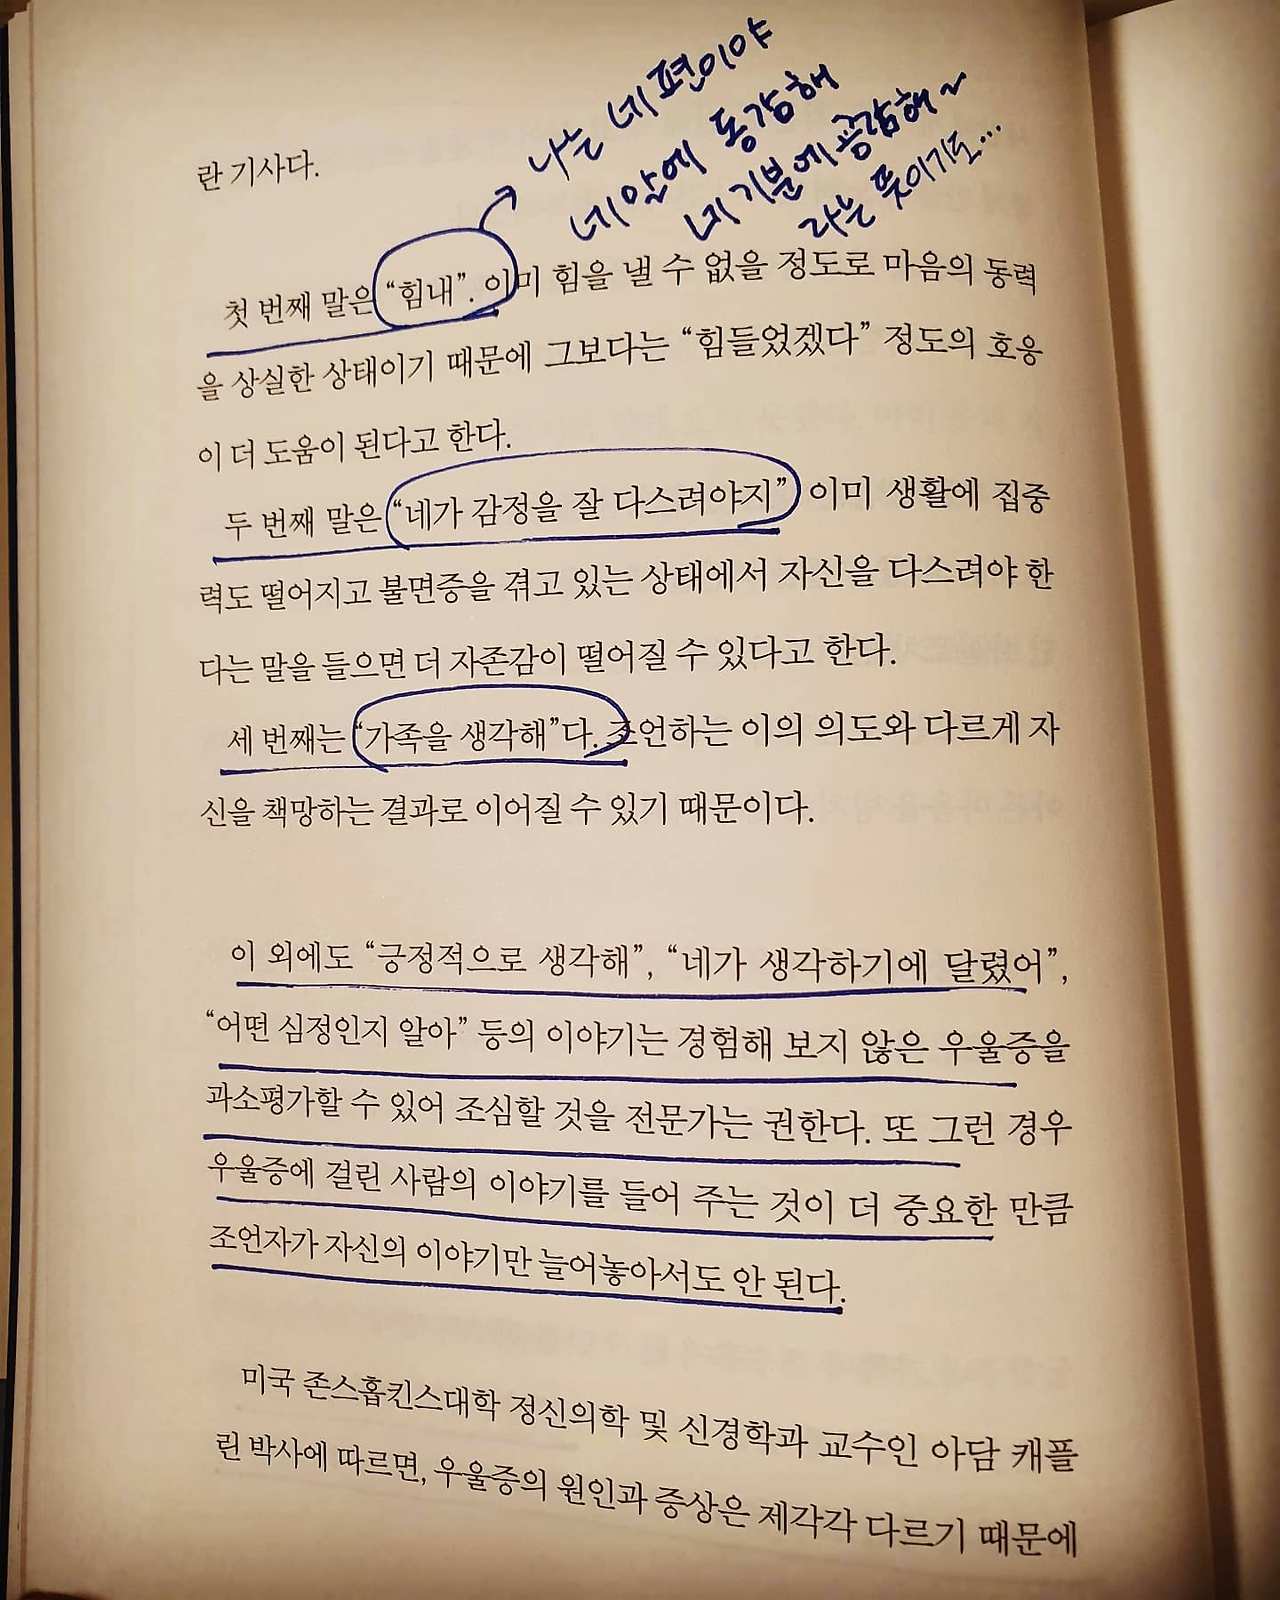 나는 네 편이야
네 맘에 동감해
네 기분에 공감해~
라는 뜻이기도...
란 기사다.
첫 번째 말은 “힘내”. 이미 힘을 낼 수 없을 정도로 마음의 동력
을 상실한 상태이기 때문에 그보다는 “힘들었겠다” 정도의 호응
이 더 도움이 된다고 한다.
두 번째 말은 “네가 감정을 잘 다스려야지” 이미 생활에 집중
력도 떨어지고 불면증을 겪고 있는 상태에서 자신을 다스려야 한
다는 말을 들으면 더 자존감이 떨어질 수 있다고 한다.
세 번째는 “가족을 생각해”다. 조언하는 이의 의도와 다르게 자
신을 책망하는 결과로 이어질 수 있기 때문이다.
이 외에도 “긍정적으로 생각해”, “네가 생각하기에 달렸어”,
“어떤 심정인지 알아” 등의 이야기는 경험해 보지 않은 우울증을
과소평가할 수 있어 조심할 것을 전문가는 권한다. 또 그런 경우
우울증에 걸린 사람의 이야기를 들어 주는 것이 더 중요한 만큼
조언자가 자신의 이야기만 늘어놓아서도 안 된다.
미국 존스홉킨스대학 정신의학 및 신경학과 교수인 아담 캐플
린 박사에 따르면, 우울증의 원인과 증상은 제각각 다르기 때문에